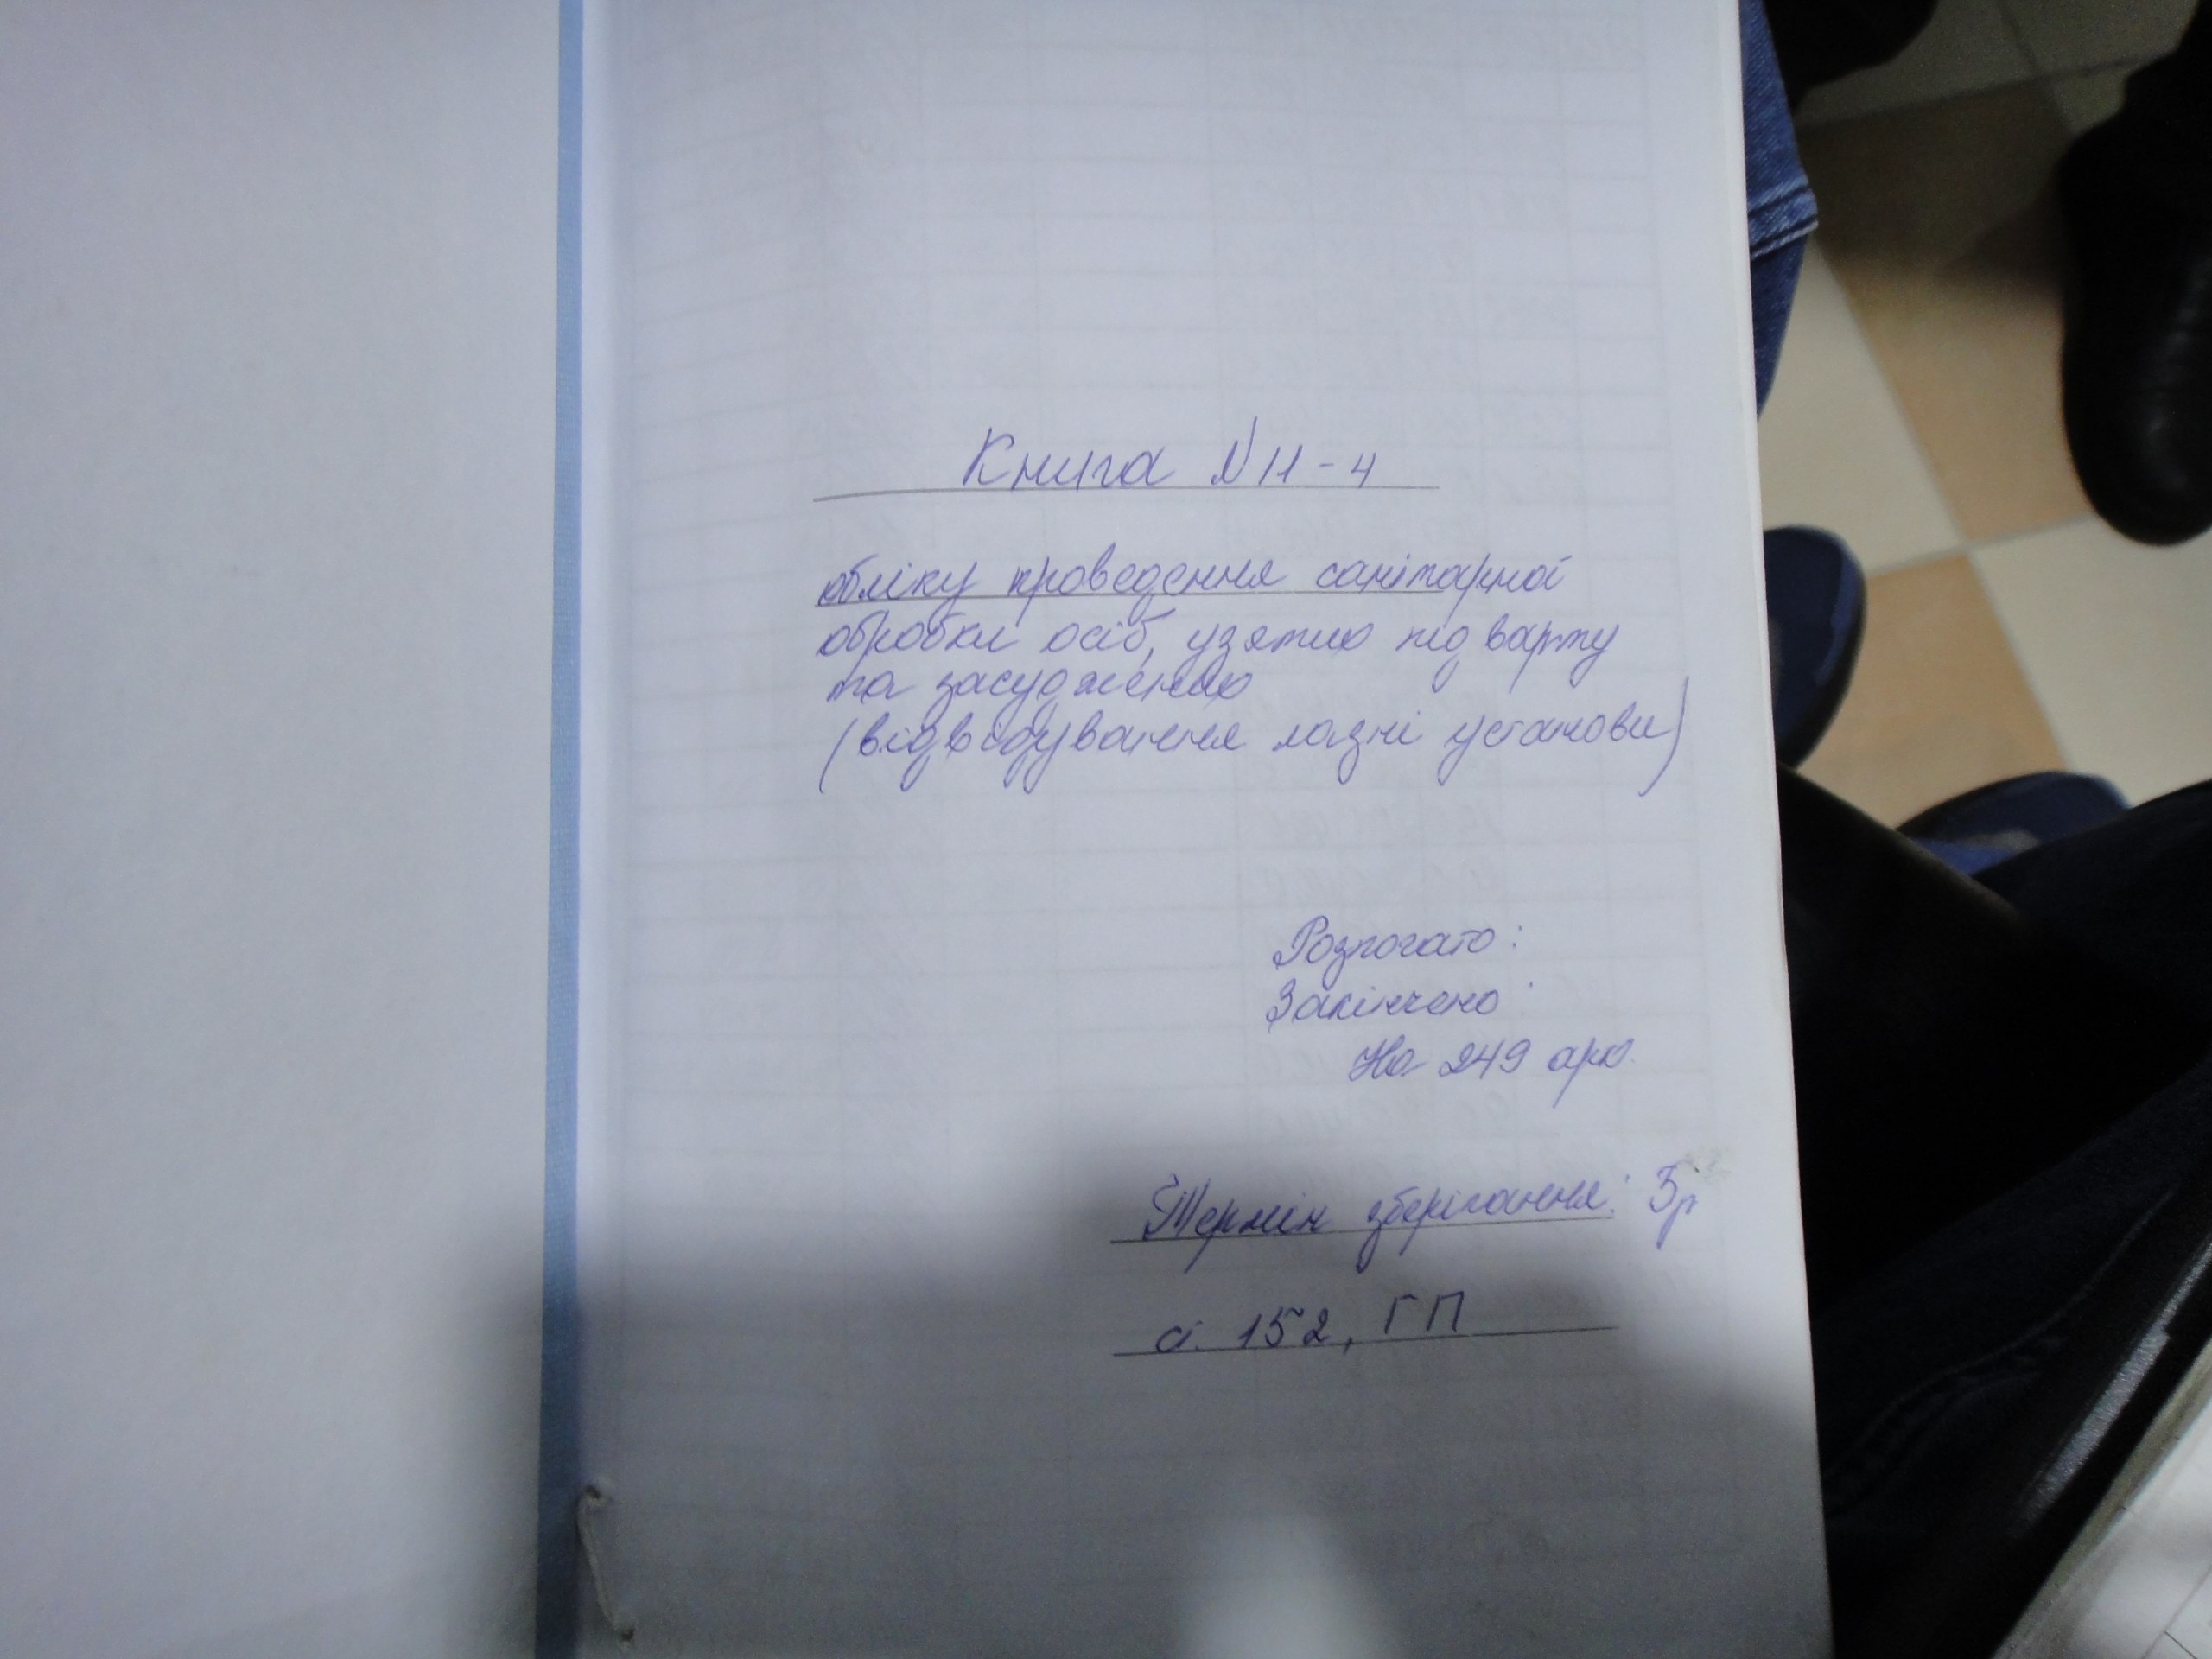 Книга № 11-4
обліку проведення санітарної
обробки осіб, узятих під варту
та засуджених
(відвідування лазні установи)
Розпочато:
Закінчено:
На 249 арк.
Термін зберігання: 3р
ст. 152, ГП